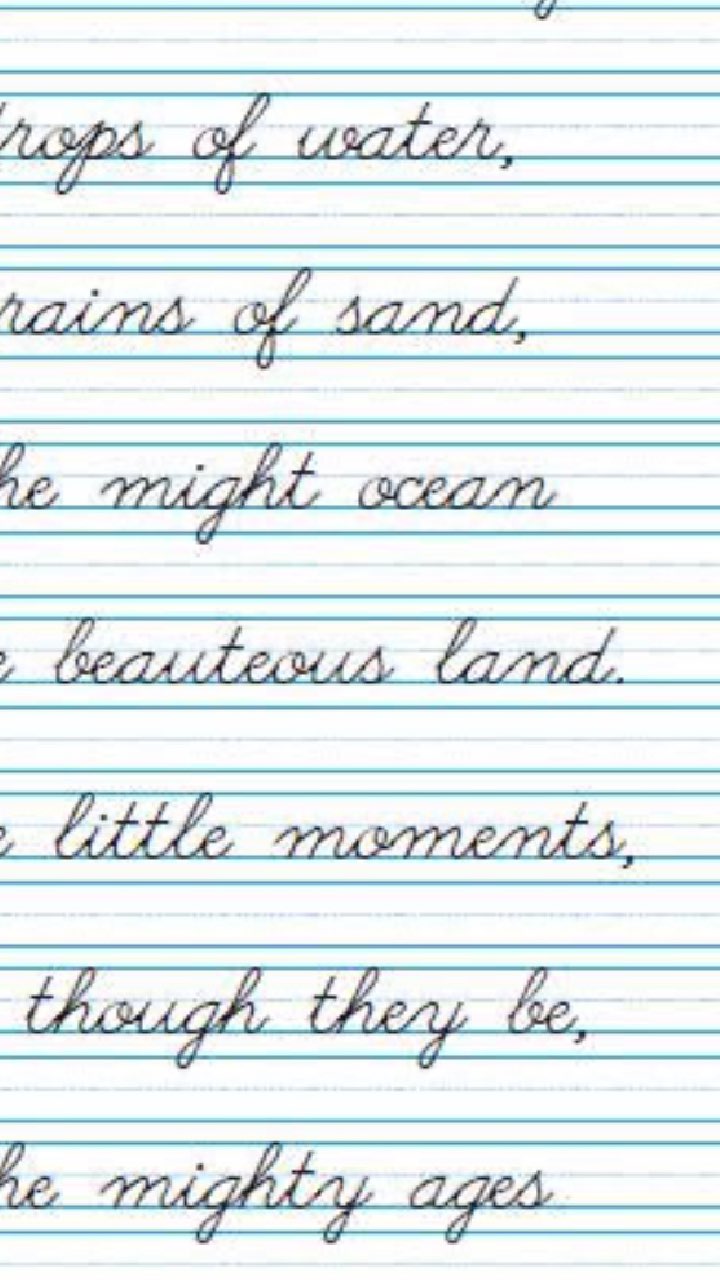 rops of water,
rains of sand,
he might ocean
e beauteous land.
e little moments,
though they be,
he mighty ages